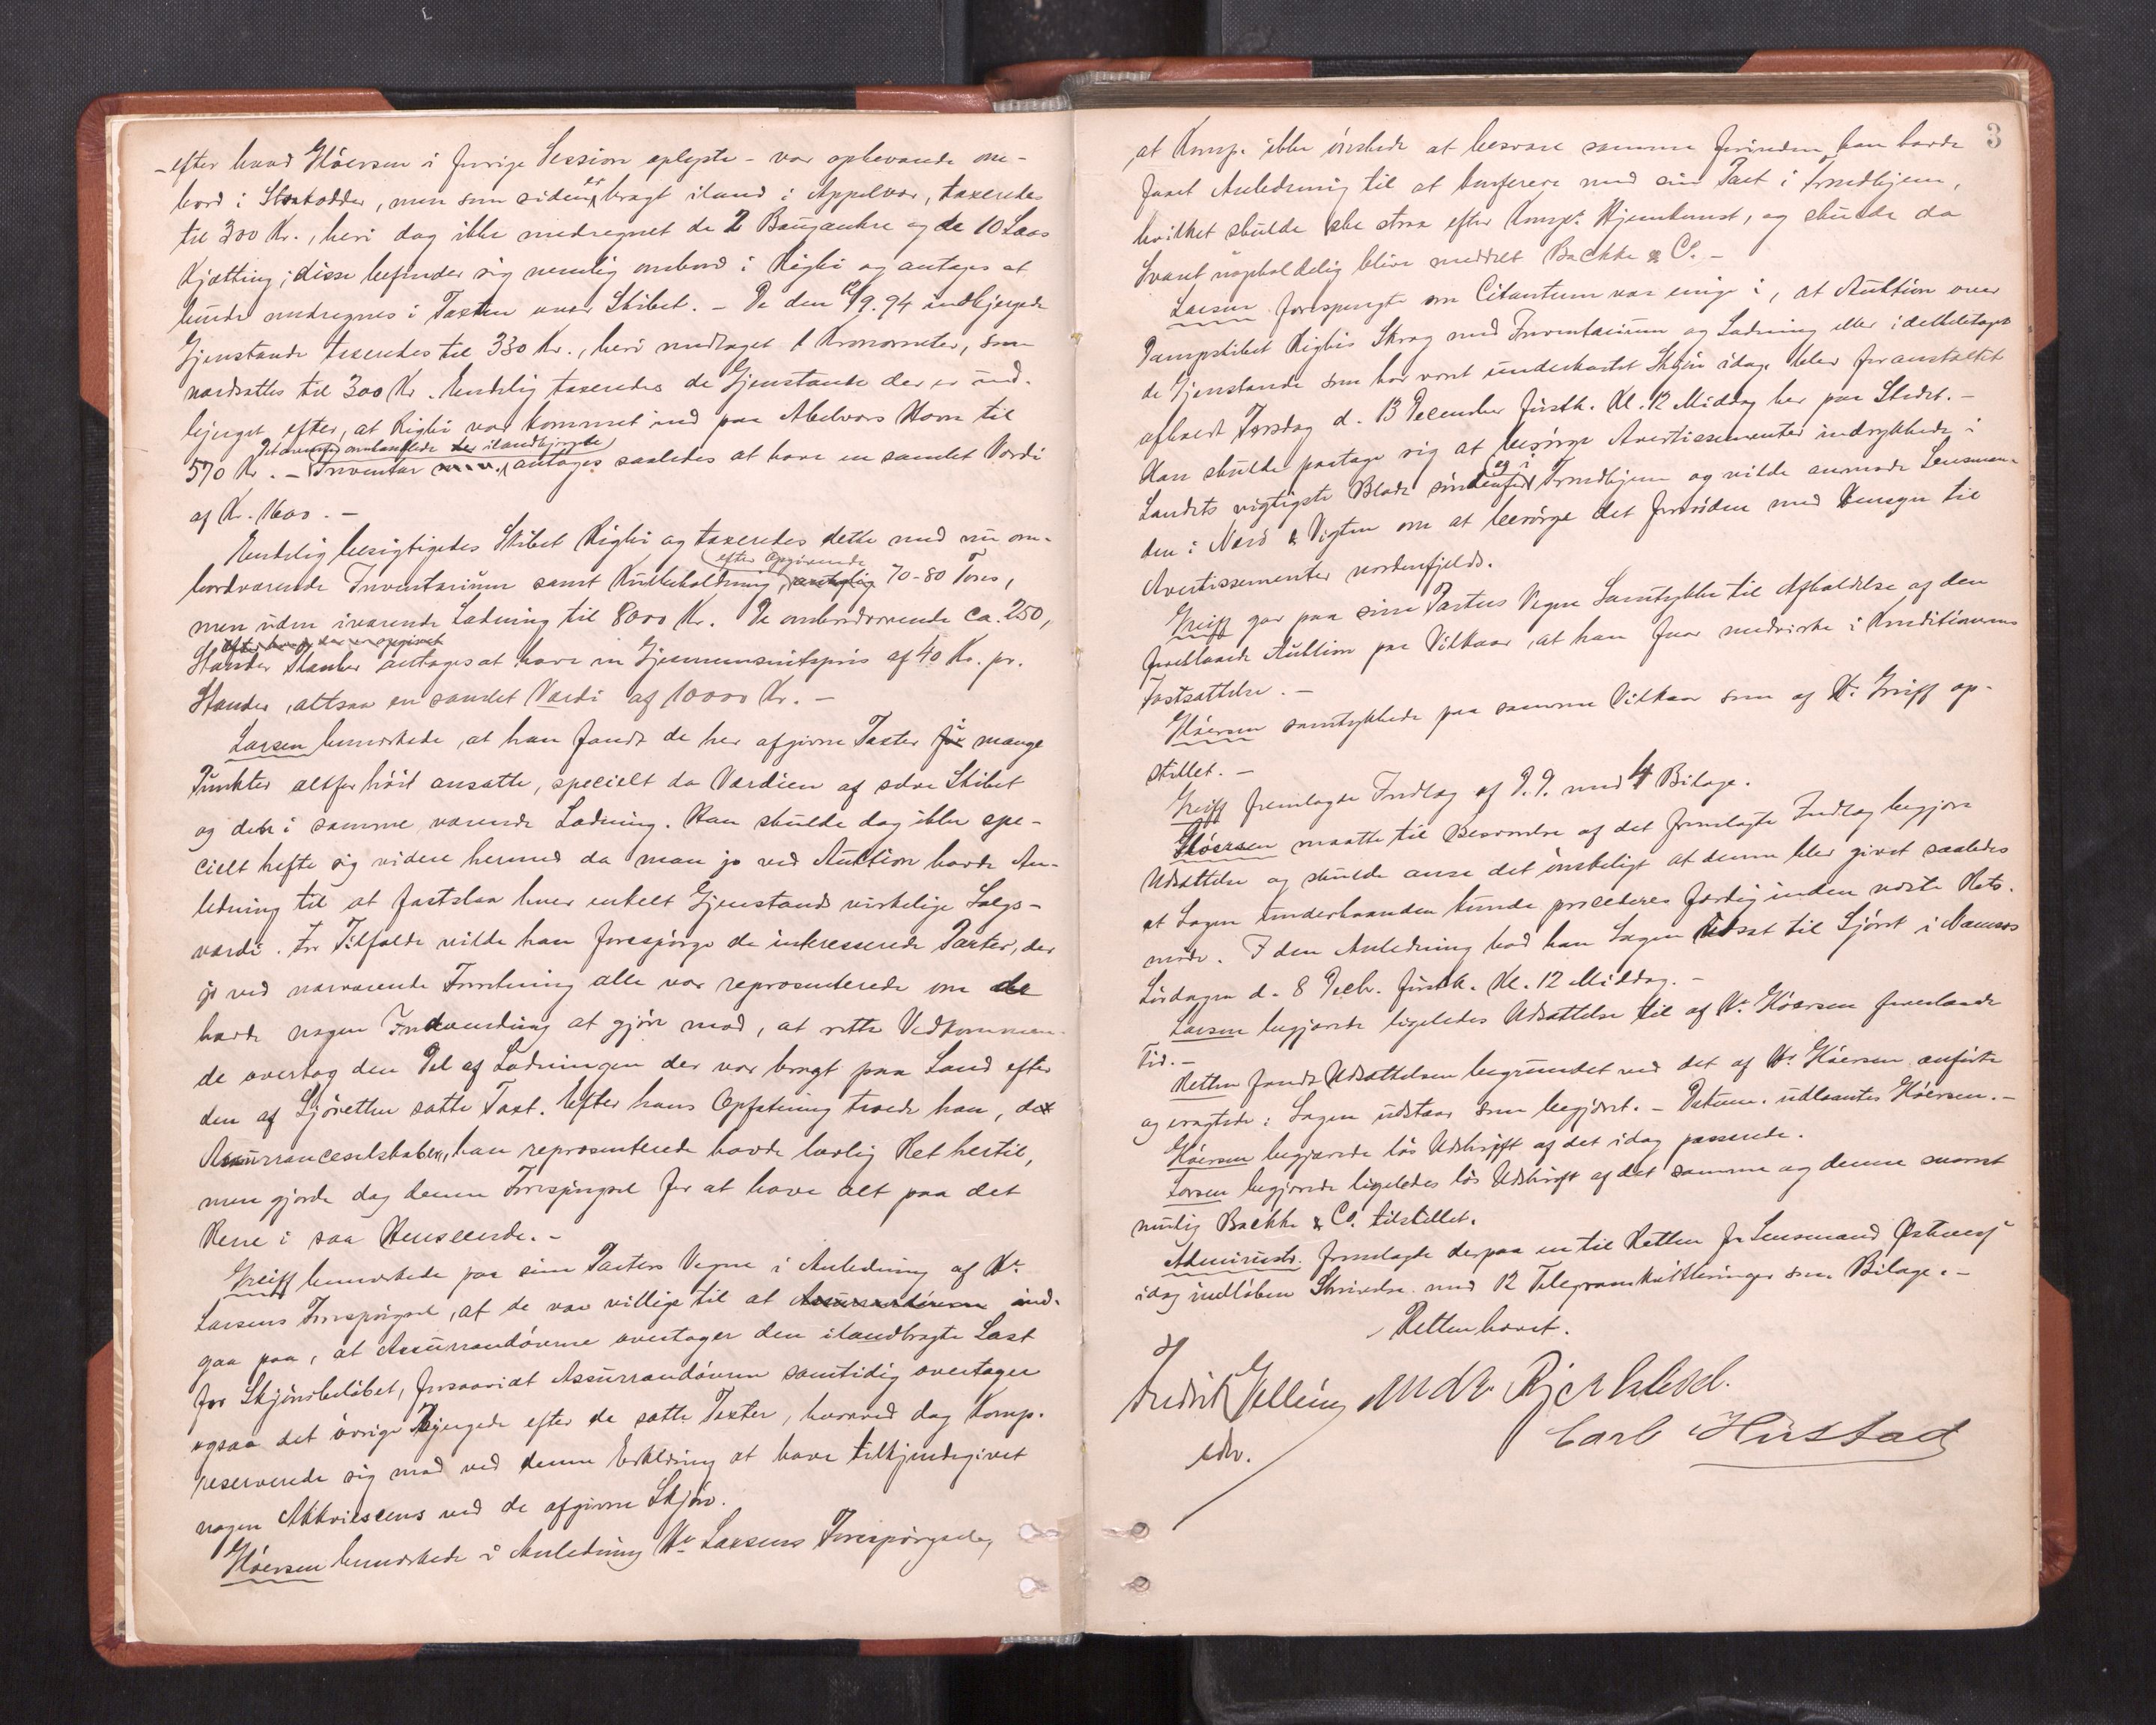 -efter hvad Höersen i forrige Session oplyste - var opbevarede om-
bord i Storkodder, men som siden er bragt iland i Appelvær, taxeredes
til 300 Kr., heri dog ikke medregnet de 2 Bougankre og de 10 Laas
Kjætting; disse befinder sig nemlig ombord i Righi og antages at
burde medregnes i Taxten over Skibet. - De den /9.94 indbjergede
Gjenstande taxeredes til 330 Kr., heri medtaget 1 Kronometer, som
værdsattes til 300 Kr. Endelig taxeredes de Gjenstande der er ind-
bjerget efter, at Righi var kommet ind paa Abelvær Havn til
Det ilandbjergede
570 Kr. - Inventar antages saaledes at have en samlet Værdi
af Kr. 1600. -
Endelig besigtigedes Skibet Righi og taxeredes dette med nu om-
efter Opgivende
bordværende Inventarium samt Kulbeholdning, 70-80 Tons,
men uden iværende Ladning til 8000 Kr. De ombordværende ca. 250,
efter hvad der er opgivet
Stander Planker antages at have en Gjennemsnitspris af 40 Kr. pr.
Stander, altsaa en samlet Værdi af 10000 Kr. -
Larsen bemærkede, at han fandt de her afgivne Taxter for mange
Punkter altfor höit ansatte, specielt da Værdien af selve Skibet
og den i samme værende Ladning. Han skulde dog ikke spe-
cielt hefte sig videre hermed da man jo ved Auktion havde An-
ledning til at fastslaa hver enkelt Gjenstands virkelige Salgs-
værdi. For Tilfælde vilde han forespörge de interesserede Parter, der
jo ved nærværende Forretning alle var repræsenterede om de
havde nogen Indvending at gjöre mod, at rette Vedkommen-
de overtog den Del af Ladningen der var bragt paa Land efter
den af Sjöretten satte Taxt. Efter hans Opfatning troede han, det
Assuranceselskaber, han repræsenterede havde lovlig Ret hertil,
men gjorde dog denne Forespörgsel for at have alt paa det
Rene i saa Henseende. -
Greiff bemærkede paa sine Parters Vegne i Anledning af Hr.
Larsens Forespörgsel, at de var villige til at Assurandörerne ind-
gaa paa, at Assurandörerne overtager den ilandbragte Last
for Skjönsbelöbet, forsaavidt Assurandörerne samtidig overtager
ogsaa det övrige bjergede efter de satte Taxter, hvorved dog Komp.
reserverede sig mod ved denne Erklæring at have tilkjendegivet
nogen Akkviescens ved de afgivne Skjön.
Höersen bemærkede i Anledning Hr. Larsens Forespörgsel,
3
at Komp. ikke önskede at besvare samme forinden han havde
faaet Anledning til at konferere med sin Part i Trondhjem,
hvilket skulde ske strax efter Komp's Hjemkomst, og skulde da
Svaret uopholdelig blive meddelt Bachke & Co. -
Larsen forespurgte om Citanterne var enige i, at Auktion over
Dampskibet Righis Skrog med Inventarium og Ladning eller idethele taget
de Gjenstande som har været underkastet Skjön idag blev foranstaltet
afholdt Torsdag d. 13 December förstk. Kl. 12 Middag her paa Stedet. -
Han skulde paatage sig at besörge Avertissementer indrykkede i
Landets vigtigste Blade söndenfor og i Trondhjem og vilde anmode Lensman-
den i Nærö & Vigten om at besörge det forövrige med Hensyn til
Avertissementer nordenfjelds.
Greiff gav paa sine Parters Vegne Samtykke til Afholdelse af den
foreslaaede Auktion paa Vilkaar, at han faar medvirke i Konditionernes
Fastsættelse. -
Höersen samtykkede paa samme Vilkaar som af Hr. Greiff op-
stillet. -
Greiff fremlagde Indlæg af D. D. med 4 Bilage.
Höersen maatte til Besvarelse af det fremlagte Indlæg begjære
Udsættelse og skulde anse det önskeligt at denne blev givet saaledes
at Sagen underhaanden kunde procederes færdig inden næste Rets-
möde. I den Anledning bad han Sagen udsat til Sjöret i Namsos
Lördagen d. 8 Decb. förstk. Kl. 12 Middag. -
Larsen begjærede ligeledes Udsættelse til af Hr. Höersen foreslaaede
Tid. -
Retten fandt Udsættelsen begrundet ved det af Hr. Höersen anförte
og eragtede: Sagen udstaar som begjært. - Dokum. udlaantes Höersen. -
Höersen begjærede lös Udskrift af det idag passerede.
Larsen begjærede ligeledes lös Udskrift af det samme og denne snarest
mulig Bachke & Co. tilstillet.
Administr. fremlagde derpaa en til Retten fra Lensmand
idag indlöben Skrivelse med 12 Telegramkvitteringer som Bilage. -
Retten hævet.
Fredrik Gelleing Andr. Bjerkholdt.
edv.
Carl Hustad